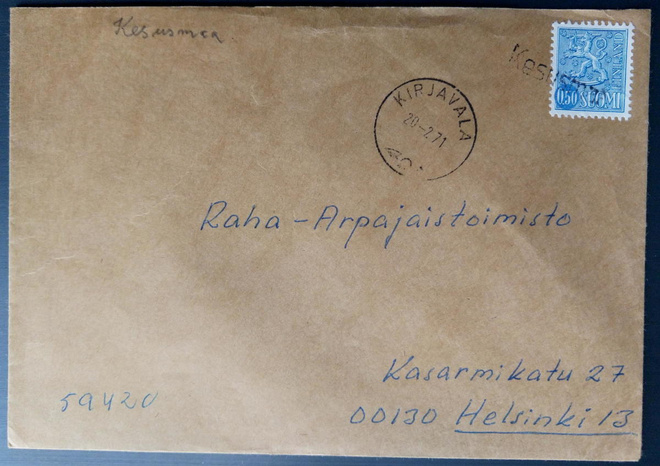 Kesusmaa
Kesusmaa
0,50 SUOMI
KIRJAVALA
20-2.71
Raha-Arpajaistoimisto
Kasarmikatu 27
00130 Helsinki 13
59420